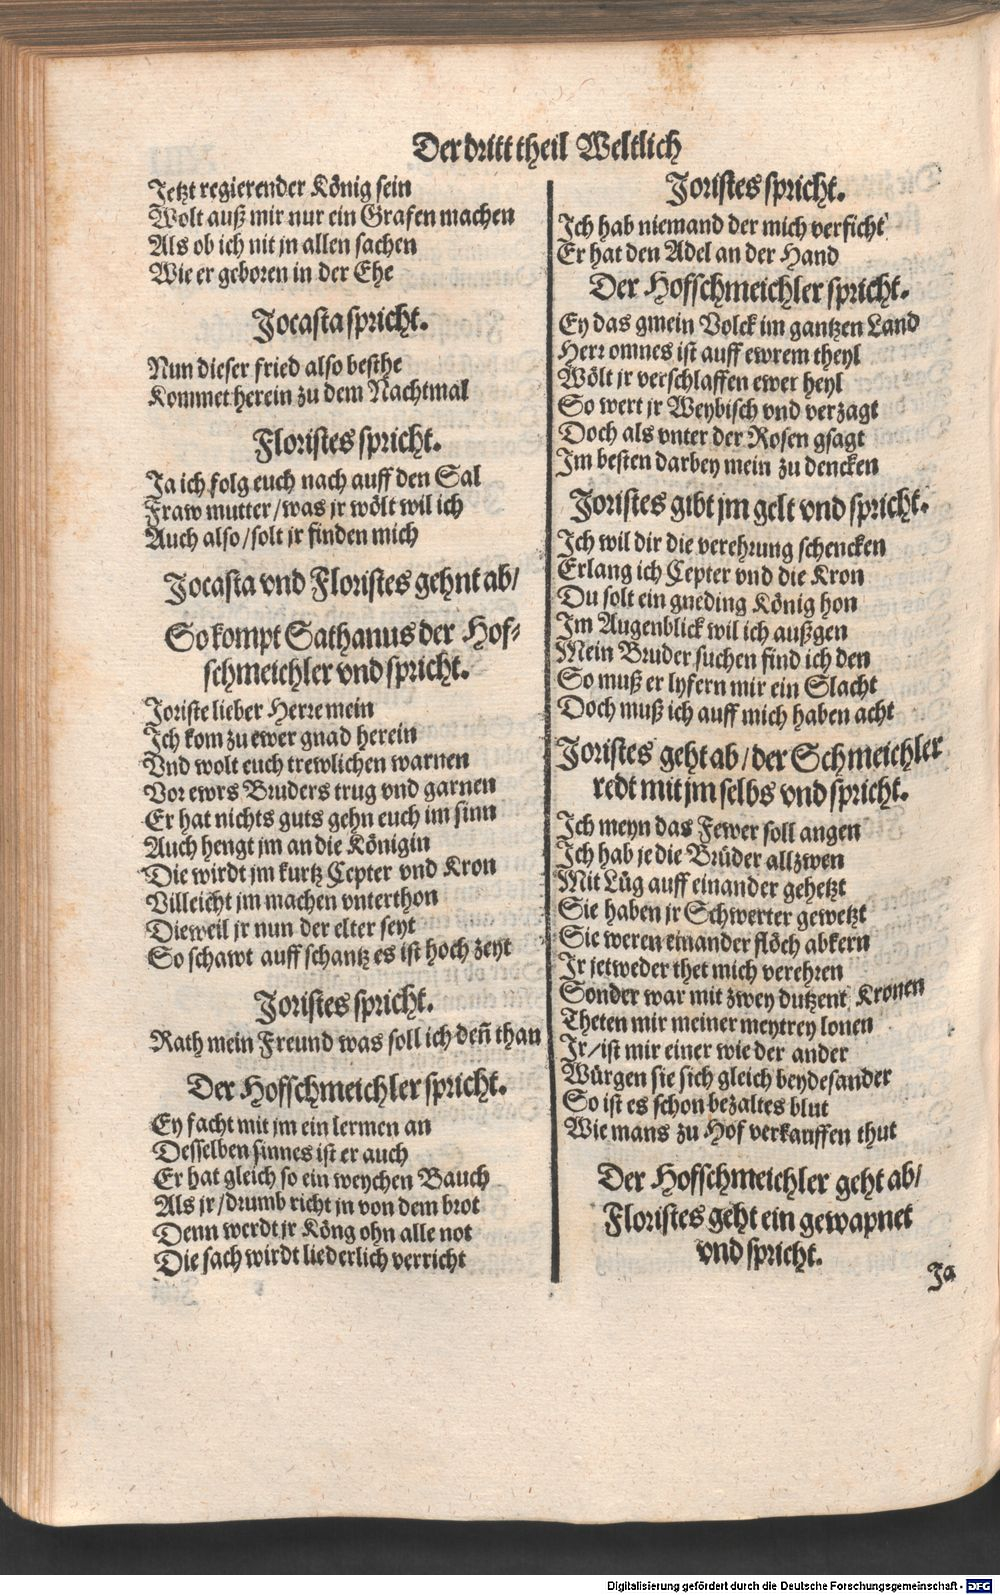 Der dritt theil Weltlich
Jetzt regierender König sein
Wolt auß mir nur ein Grafen machen
Als ob ich nit jn allen sachen
Wie er geboren in der Ehe
Jocasta spricht.
Nun dieser fried also besthe
Kommet herein zu dem Nachtmal
Floristes spricht.
Ja ich folg euch nach auff den Sal
Fraw mutter/was jr wölt wil ich
Auch also/solt jr finden mich
Jocasta vnd Floristes gehnt ab/
So kompt Sathanus der Hof-
schmeichler vnd spricht.
Joriste lieber Herre mein
Ich kom zu ewer gnad herein
Vnd wolt euch trewlichen warnen
Vor ewrs Bruders trug vnd garnen
Er hat nichts guts gehn euch im sinn
Auch hengt jm an die Königin
Die wirdt jm kurtz Cepter vnd Kron
Villeicht jm machen vnterthon
Dieweil jr nun der elter seyt
So schawt auff schantz es ist hoch zeyt
Joristes spricht.
Rath mein Freund was soll ich deñ than
Der Hofschmeichler spricht.
Ey facht mit jm ein lermen an
Desselben sinnes ist er auch
Er hat gleich so ein weychen Bauch
Als jr/drumb richt jn von dem brot
Denn werdt jr Köng ohn alle not
Die sach wirdt liederlich verricht
Joristes spricht.
Ich hab niemand der mich verficht
Er hat den Adel an der Hand
Der Hofschmeichler spricht.
Ey das gmein Volck im gantzen Land
Herr omnes ist auff ewrem theyl
Wölt jr verschlaffen ewer heyl
So wert jr Weybisch vnd verzagt
Doch als vnter der Rosen gsagt
Im besten darbey mein zu dencken
Joristes gibt jm gelt vnd spricht.
Ich wil dir die verehrung schencken
Erlang ich Cepter vnd die Kron
Du solt ein gneding König hon
Im Augenblick wil ich außgen
Mein Bruder suchen find ich den
So muß er lyfern mir ein Slacht
Doch muß ich auff mich haben acht
Joristes geht ab/der Schmeichler
redt mit jm selbs vnd spricht.
Ich meyn das Fewer soll angen
Ich hab je die Brüder allzwen
Mit Lüg auff einander gehetzt
Sie haben jr Schwerter gewetzt
Sie weren einander flöch abkern
Jr jetweder thet mich verehren
Sonder war mit zwey dutzent Kronen
Theten mir meiner meytrey lonen
Jr/ist mir einer wie der ander
Würgen sie sich gleich beydesander
So ist es schon bezaltes blut
Wie mans zu Hof verkauffen thut
Der Hofschmeichler geht ab/
Floristes geht ein gewapnet
vnd spricht.
Ja
Digitalisierung gefördert durch die Deutsche Forschungsgemeinschaft - DFG